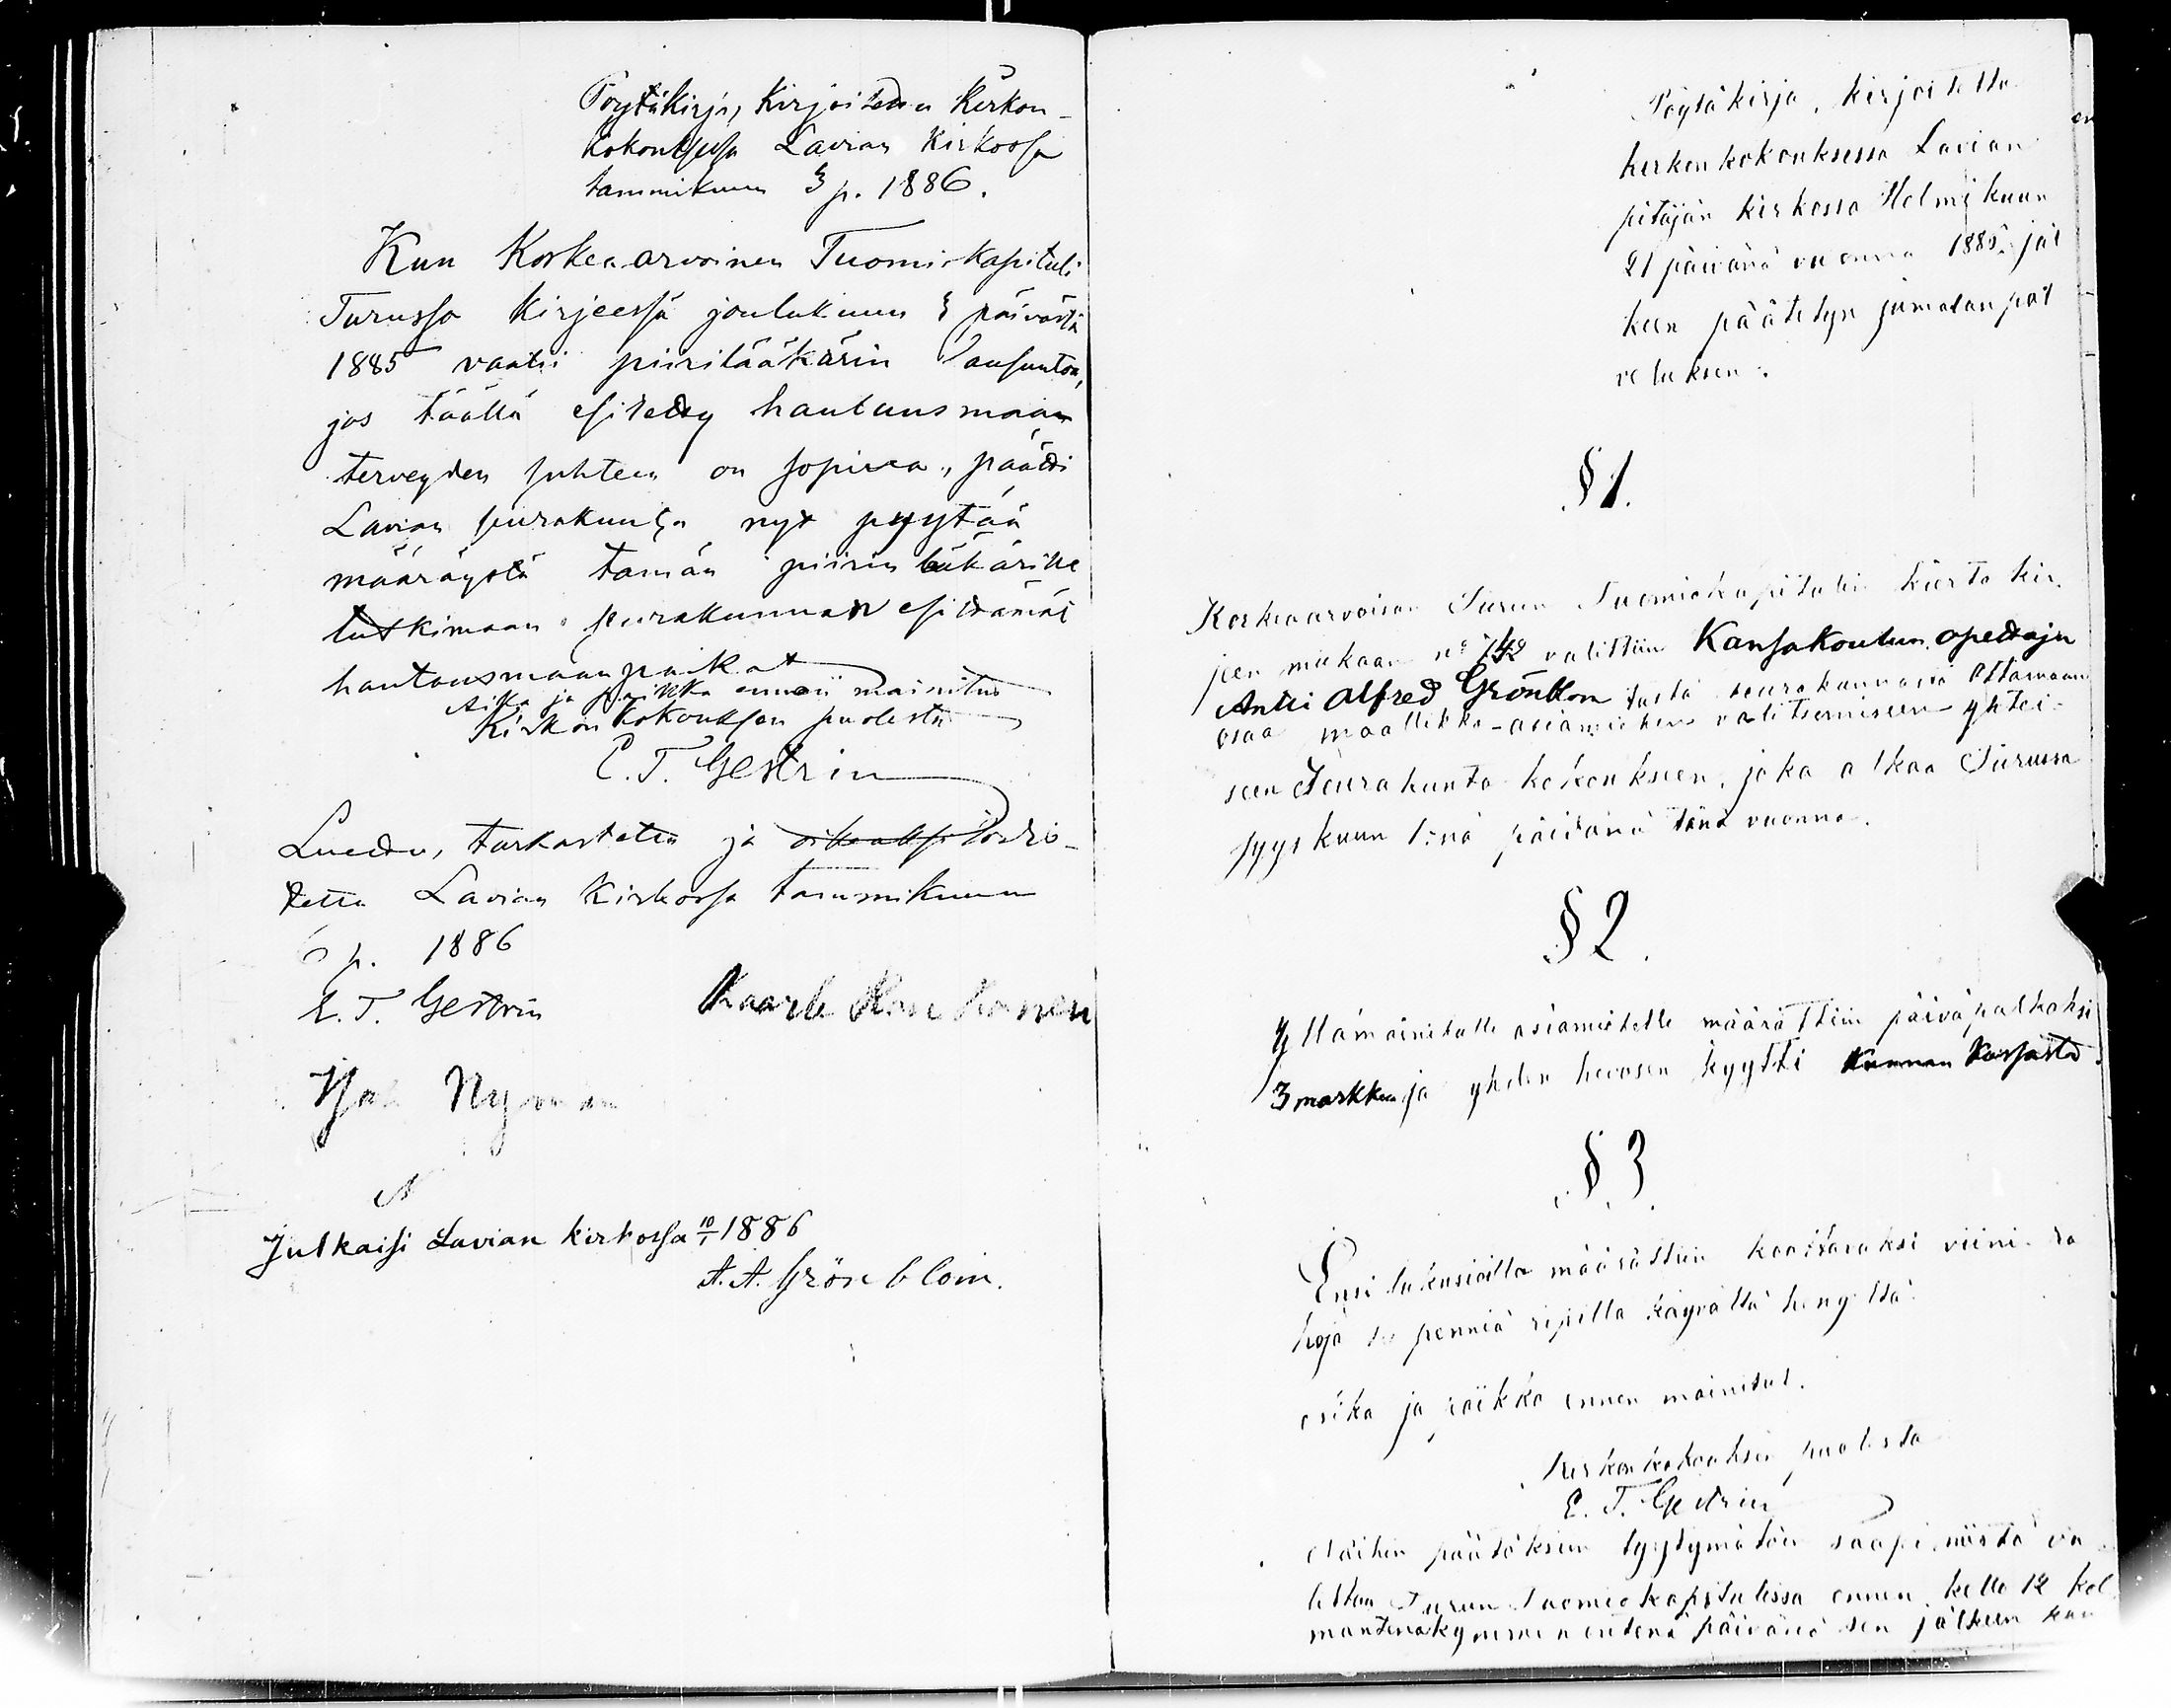 Pöytäkirja, kirjoitettu Kirkon-
kokouksessa Lavian kirkossa
tammikuun 3 p. 1886.
Kun Korkea arvoinen Tuomiokapituli
Turussa kirjeessä joulukuun 3 päivästä
1885 vaatii piirilääkärin lausuntoa,
jos täällä esitetty hautausmaan
terveyden suhteen on sopiva, päätti
Lavian seurakunta nyt pyytää
määräystä tämän piirin lääkärille
tutkimaan seurakunnan esittämät
hautausmaan paikat
Aika ja paikka ennen mainitut
Kirkon kokouksen puolesta
E. T. Gestrin
Luettu, tarkastettu ja
tettu Lavian kirkossa tammikuun
6 p. 1886
E. T. Gestrin Kaarle
Nyman
Julkaisi Lavian kirkossa 10/1 1886
A. A. Grönblom.
Pöytäkirja, kirjoitettu
kirkonkokouksessa Lavian
pitäjän kirkossa Helmikuun
21 päivänä vuonna 1885 jäl
keen päätetyn jumalanpal
veluksen.
§ 1.
Korkeaarvoisan Turun Tuomiokapitulin kierto kir-
jeen mukaan no 742 valittiin Kansakoulun opettaja
Antti Alfred Grönblom tästä seurakunnasta ottamaan
osaa maallikko-asiamiehen valitsemiseen yhtei-
seen Seurakunta kokoukseen, joka alkaa Turussa
syyskuun 1:nä päivänä tänä vuonna.
§ 2.
Yllämainitulle asiamiehelle määrättiin päiväpalkaksi
3 markkaa ja yhden hevosen kyytti Kunnan Kassasta.
§ 3.
Ensi lukusioilla määrättiin koottavaksi viini-ra
hoja penniä ripillä käyvältä hengeltä.
aika ja paikka ennen mainitut.
Kirkonkokouksen puolesta
E. T. Gestrin
Näihin päätöksiin tyytymätön saapi niistä va
littaa Turun Tuomiokapitulissa ennen kello 12 kol
mantenakymmenentenä päivänä sen jälkeen kun